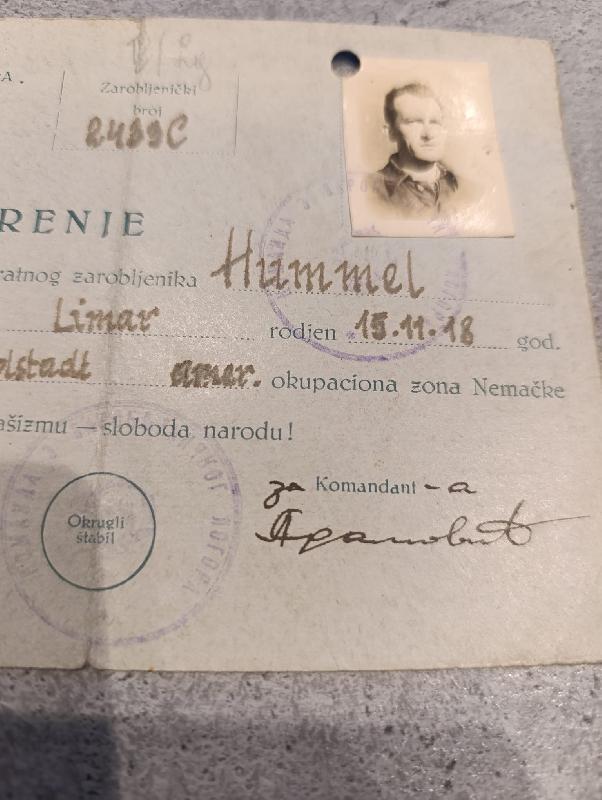 Zarobljenički
broj
2499C
RENJE
ratnog zarobljenika Hummel
Limar rodjen 15.11.18 god.
olstadt amer. okupaciona zona Nemačke
ašizmu — sloboda narodu!
za Komandant-a
Okrugli
štabil